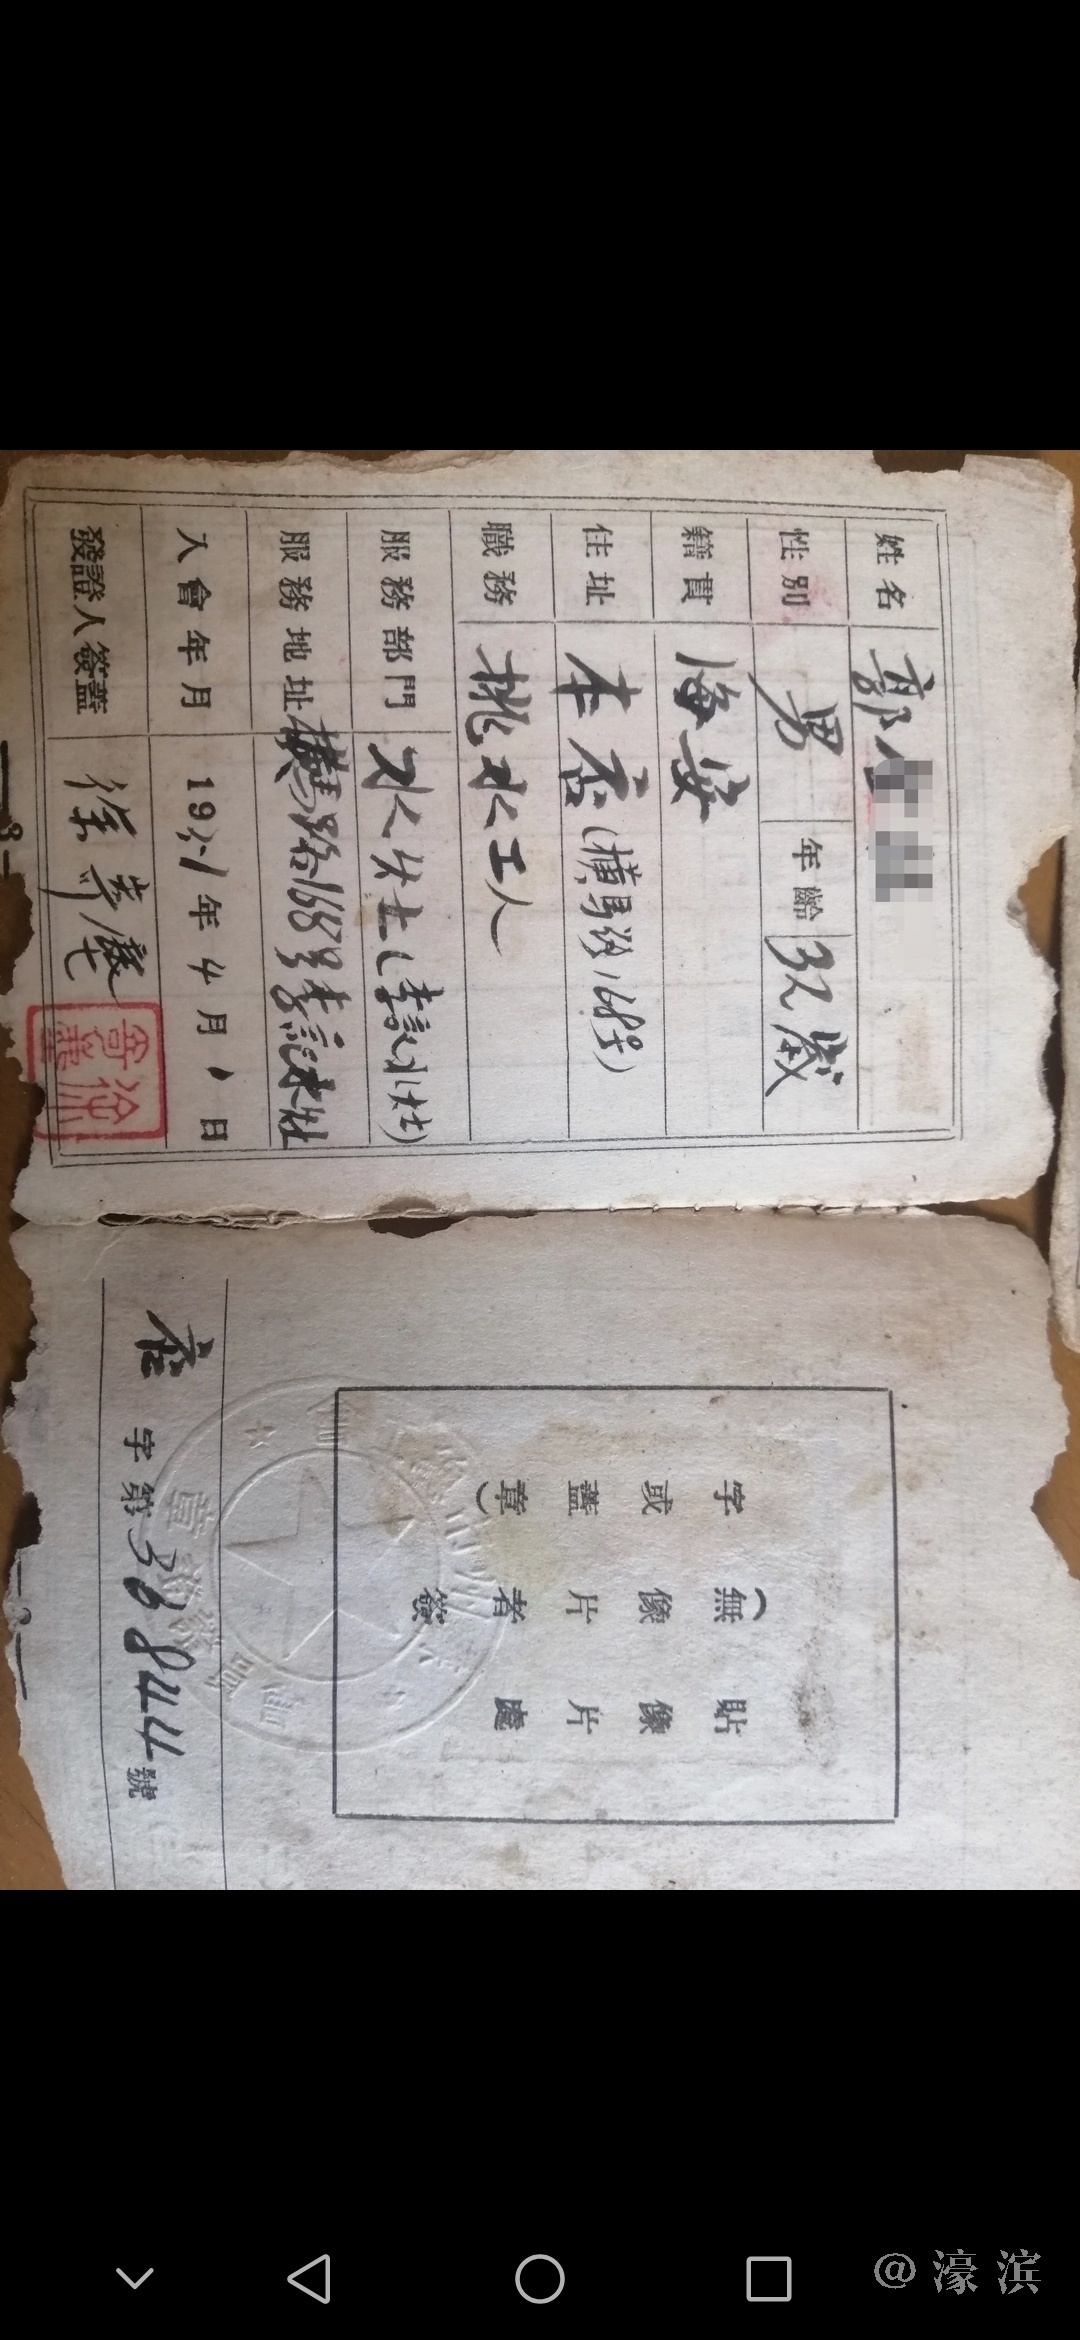 姓名 郭
性別 男 年齡 32歲
籍貫 海安
住址 本店(橫馬路168号)
職務 挑水工人
服務部門 水灶(李記水灶)
服務地址 橫馬路168号李記水灶
入會年月 1951年4月1日
發證人簽蓋 徐
—3—
貼像片處
(無像片者簽
字或蓋章)
店字第36844號
@濠滨